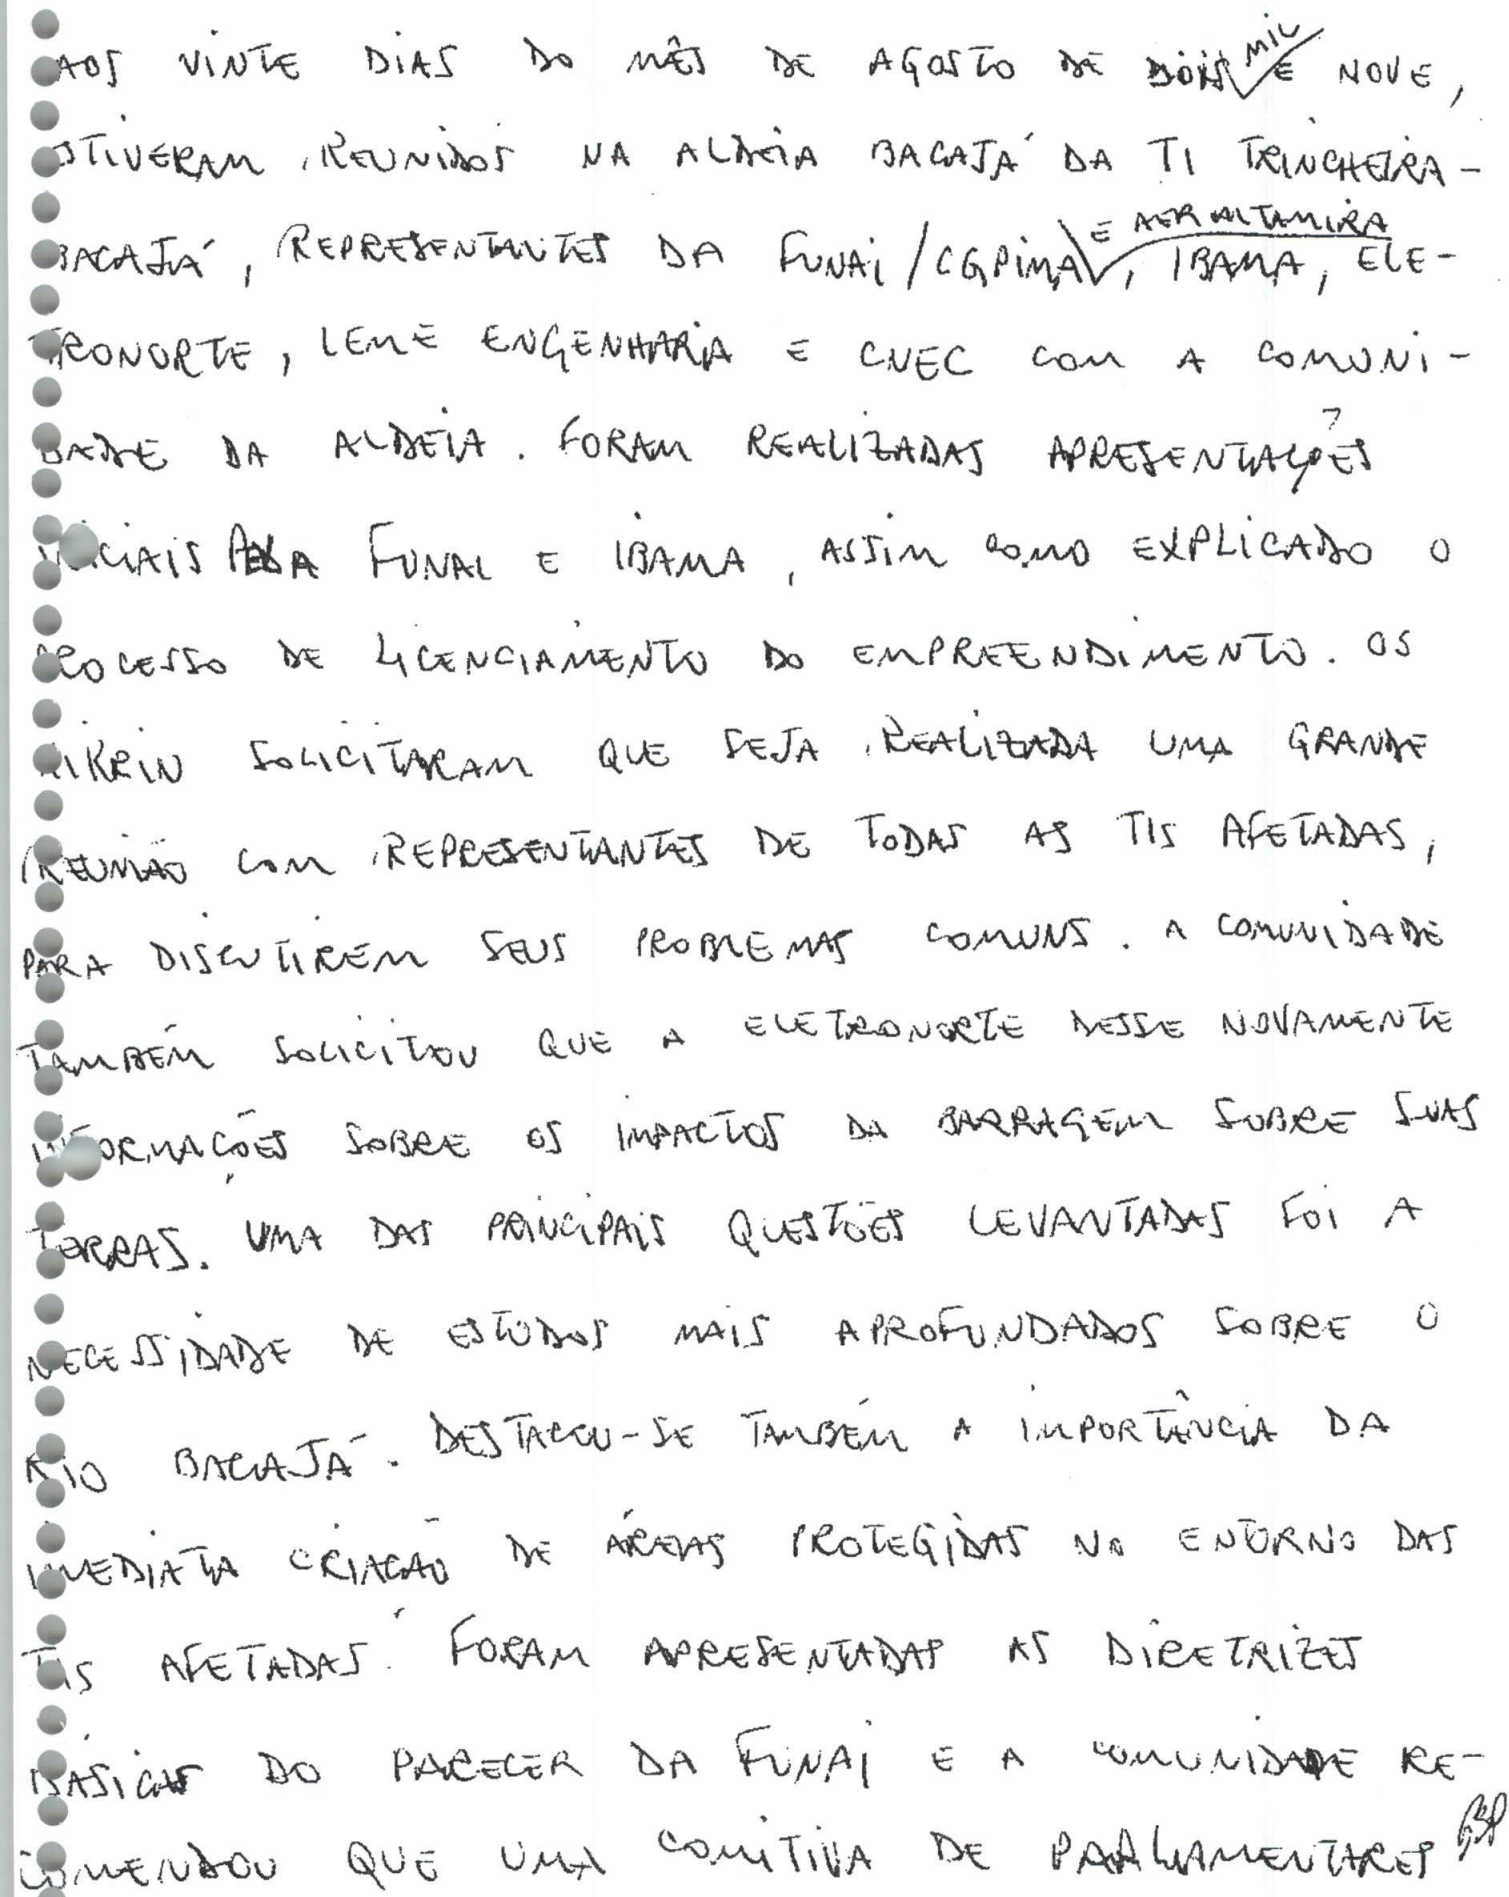 AOS VINTE DIAS DO MÊS DE AGOSTO DE DOIS MIL E NOVE,
ESTIVERAM REUNIDOS NA ALDEIA BACAJÁ DA TI TRINCHEIRA-
BACAJÁ, REPRESENTANTES DA FUNAI/CGPIMA E AER ALTAMIRA, IBAMA, ELE-
TRONORTE, LEME ENGENHARIA E CNEC COM A COMUNI-
DADE DA ALDEIA. FORAM REALIZADAS APRESENTAÇÕES
INICIAIS PELA FUNAI E IBAMA, ASSIM COMO EXPLICADO O
PROCESSO DE LICENCIAMENTO DO EMPREENDIMENTO. OS
XIKRIN SOLICITARAM QUE SEJA REALIZADA UMA GRANDE
REUNIÃO COM REPRESENTANTES DE TODAS AS TIS AFETADAS,
PARA DISCUTIREM SEUS PROBLEMAS COMUNS. A COMUNIDADE
TAMBÉM SOLICITOU QUE A ELETRONORTE DESSE NOVAMENTE
INFORMAÇÕES SOBRE OS IMPACTOS DA BARRAGEM SOBRE SUAS
TERRAS. UMA DAS PRINCIPAIS QUESTÕES LEVANTADAS FOI A
NECESSIDADE DE ESTUDOS MAIS APROFUNDADOS SOBRE O
RIO BACAJÁ. DESTACOU-SE TAMBÉM A IMPORTÂNCIA DA
IMEDIATA CRIAÇÃO DE ÁREAS PROTEGIDAS NO ENTORNO DAS
TIS AFETADAS. FORAM APRESENTADAS AS DIRETRIZES
BÁSICAS DO PARECER DA FUNAI E A COMUNIDADE RE-
COMENDOU QUE UMA COMITIVA DE PARLAMENTARES